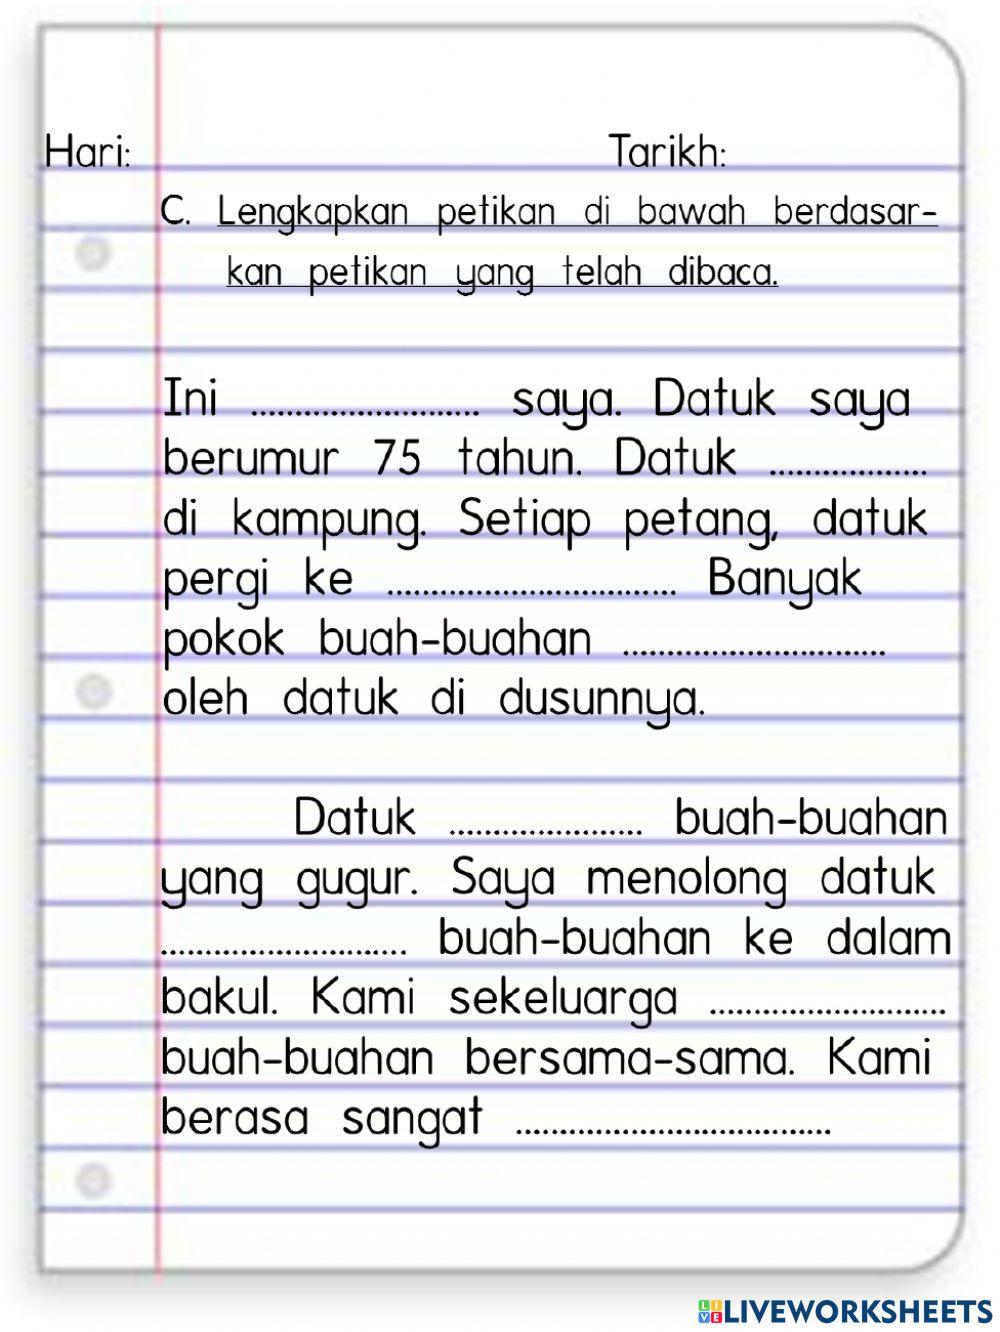 Hari: Tarikh:
C. Lengkapkan petikan di bawah berdasar-
kan petikan yang telah dibaca.
Ini .......................... saya. Datuk saya
berumur 75 tahun. Datuk ..................
di kampung. Setiap petang, datuk
pergi ke ................................. Banyak
pokok buah-buahan ..............................
oleh datuk di dusunnya.
Datuk ...................... buah-buahan
yang gugur. Saya menolong datuk
............................ buah-buahan ke dalam
bakul. Kami sekeluarga ...........................
buah-buahan bersama-sama. Kami
berasa sangat ....................................
LIVEWORKSHEETS